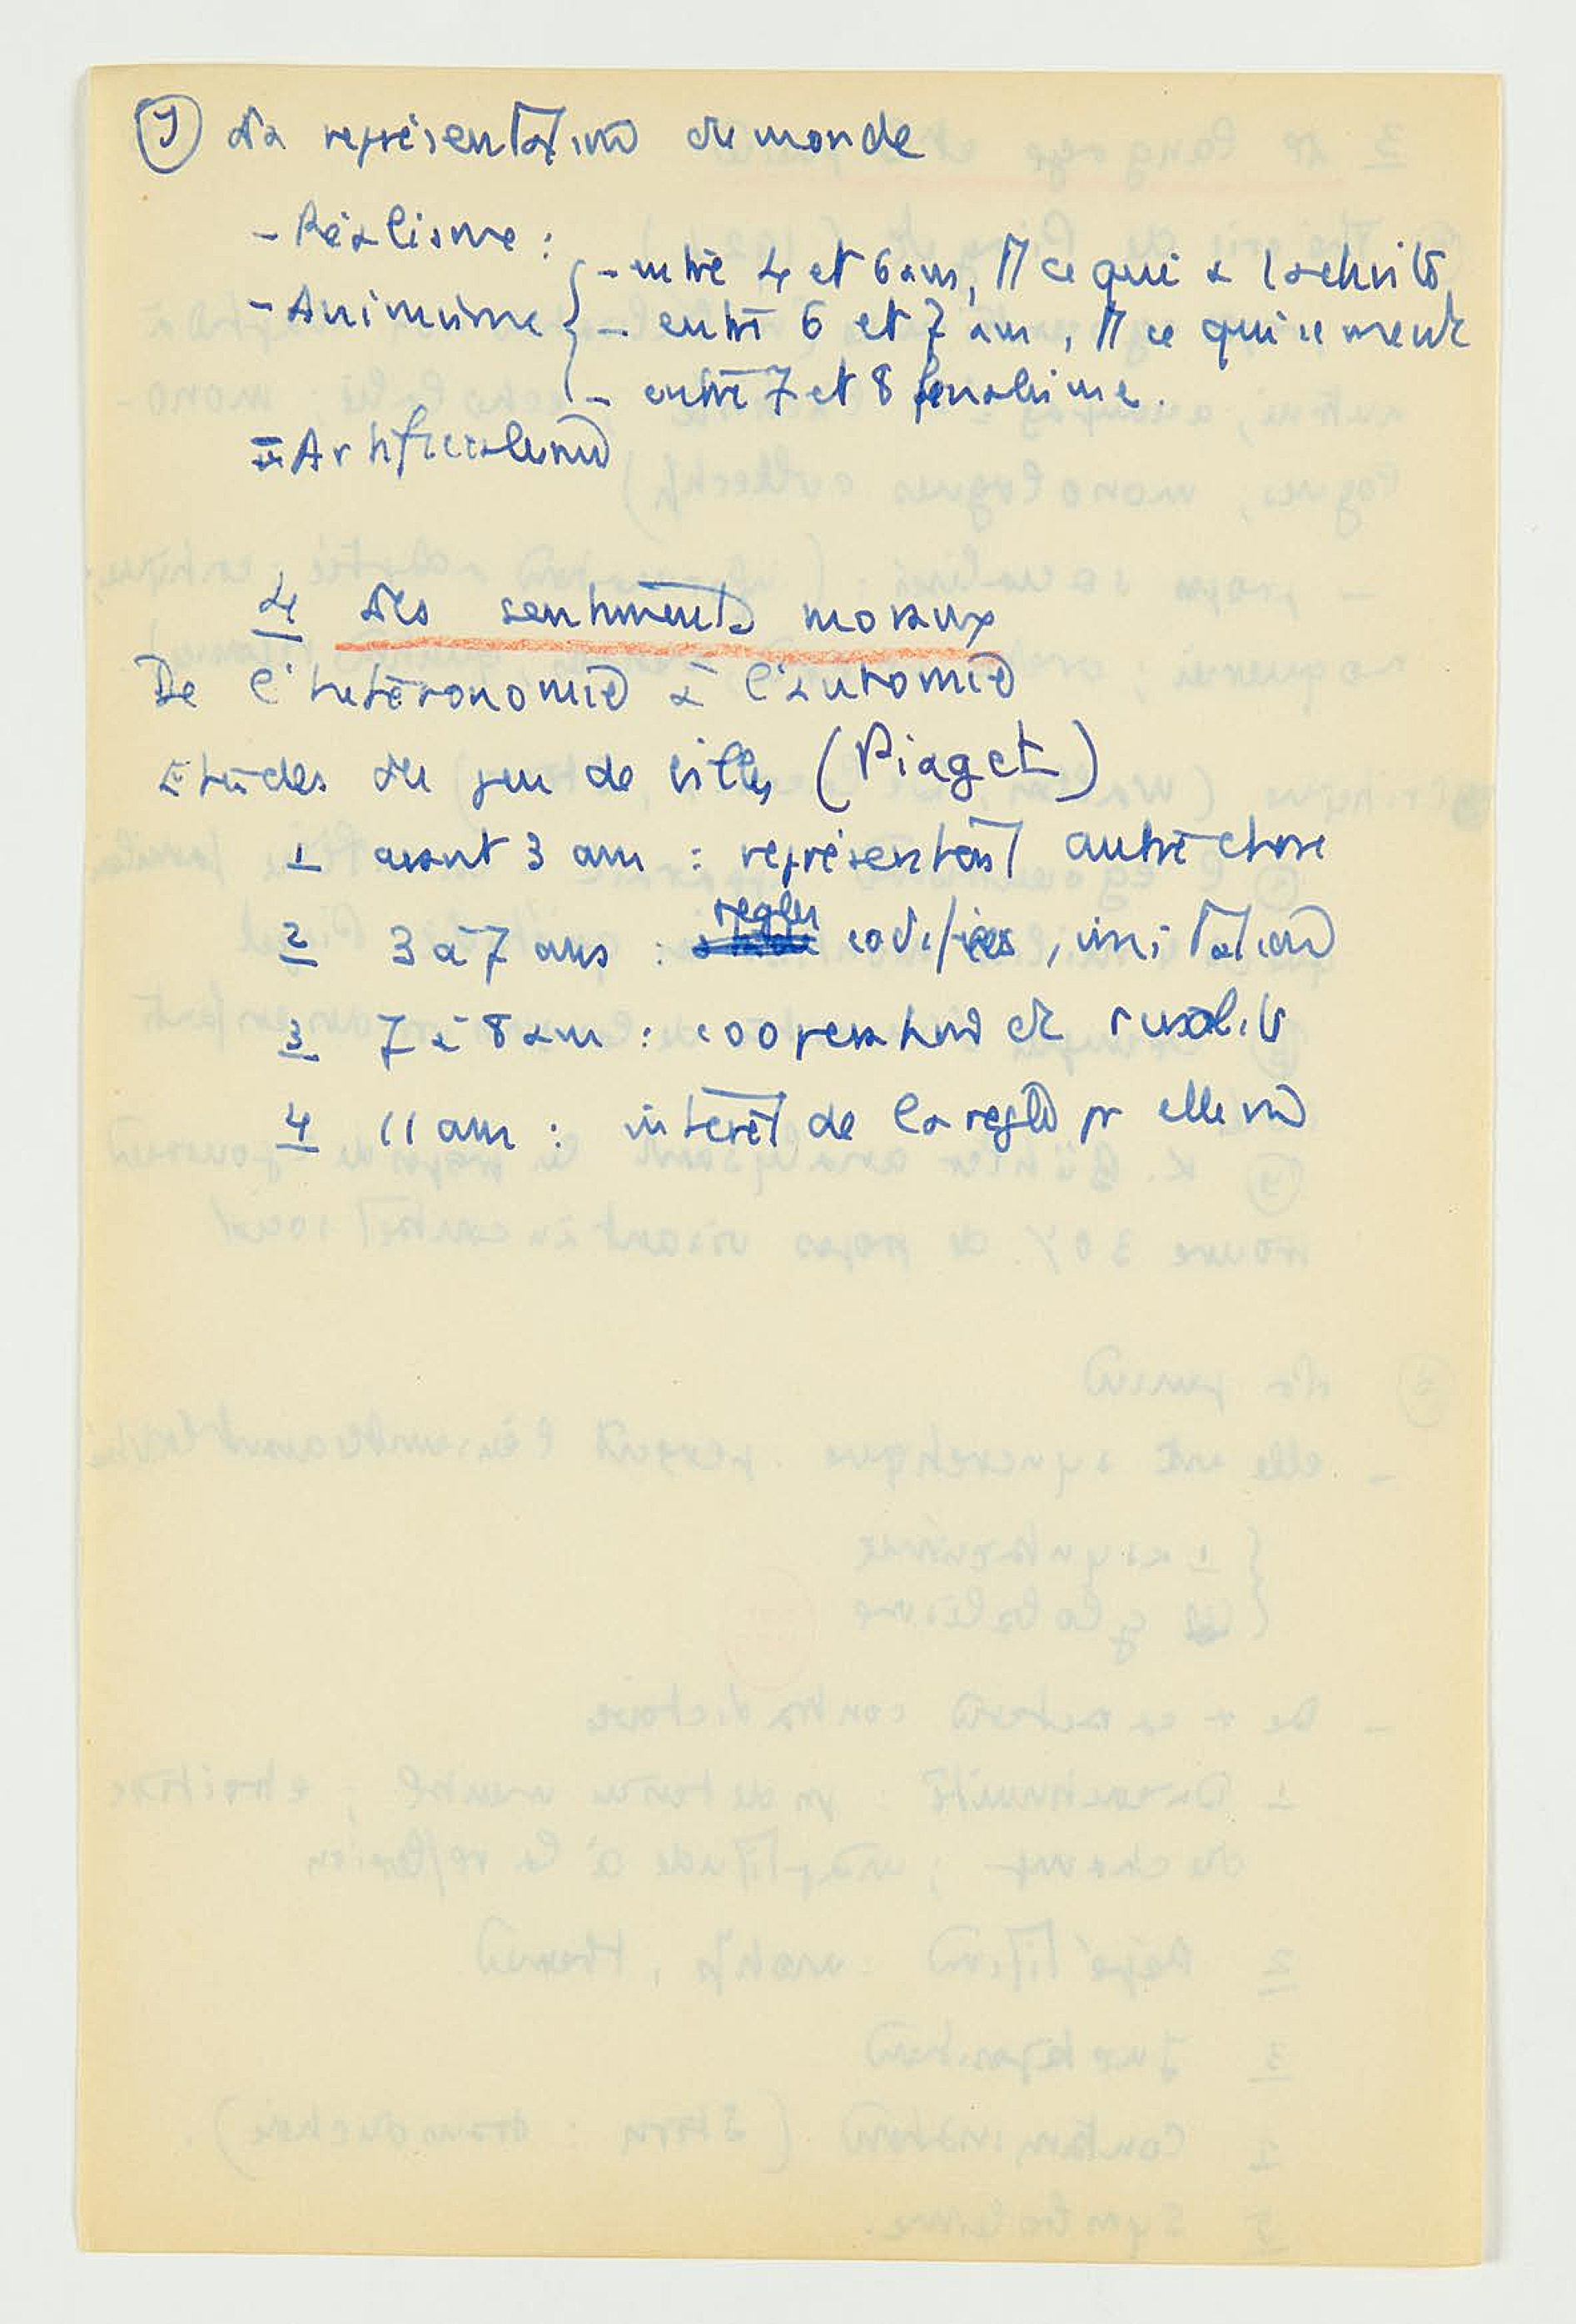 ③ La représentation du monde
- Réalisme :
- Animisme { - entre 4 et 6 ans, tt ce qui a 1 activité
- entre 6 et 7 ans, tt ce qui se meut
- entre 7 et 8
- Artificialisme
4 Les sentiments moraux
De l'hétéronomie à l'autonomie
Etudes du jeu de billes (Piaget)
1 avant 3 ans : représentent autre chose
2 3 à 7 ans : regles codifiées, imitation
3 7 à 8 ans : cooperation et rivalité
4 11 ans : intérêt de la regle pr elle même